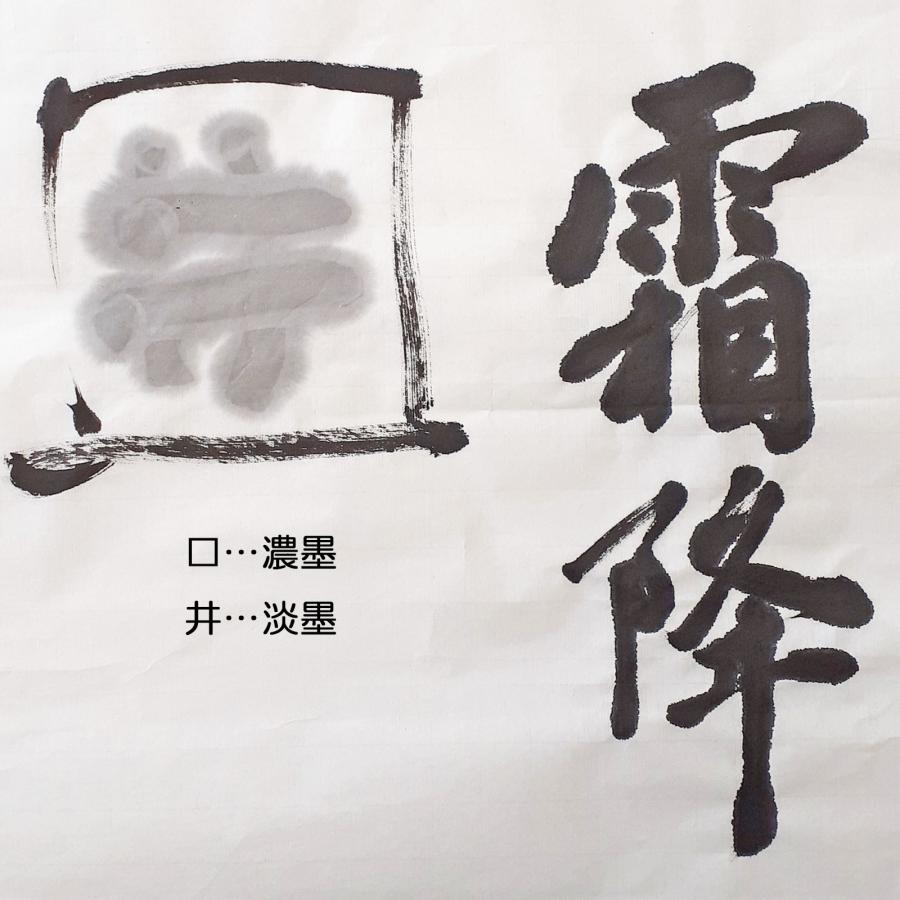 霜降
囲
口…濃墨
井…淡墨